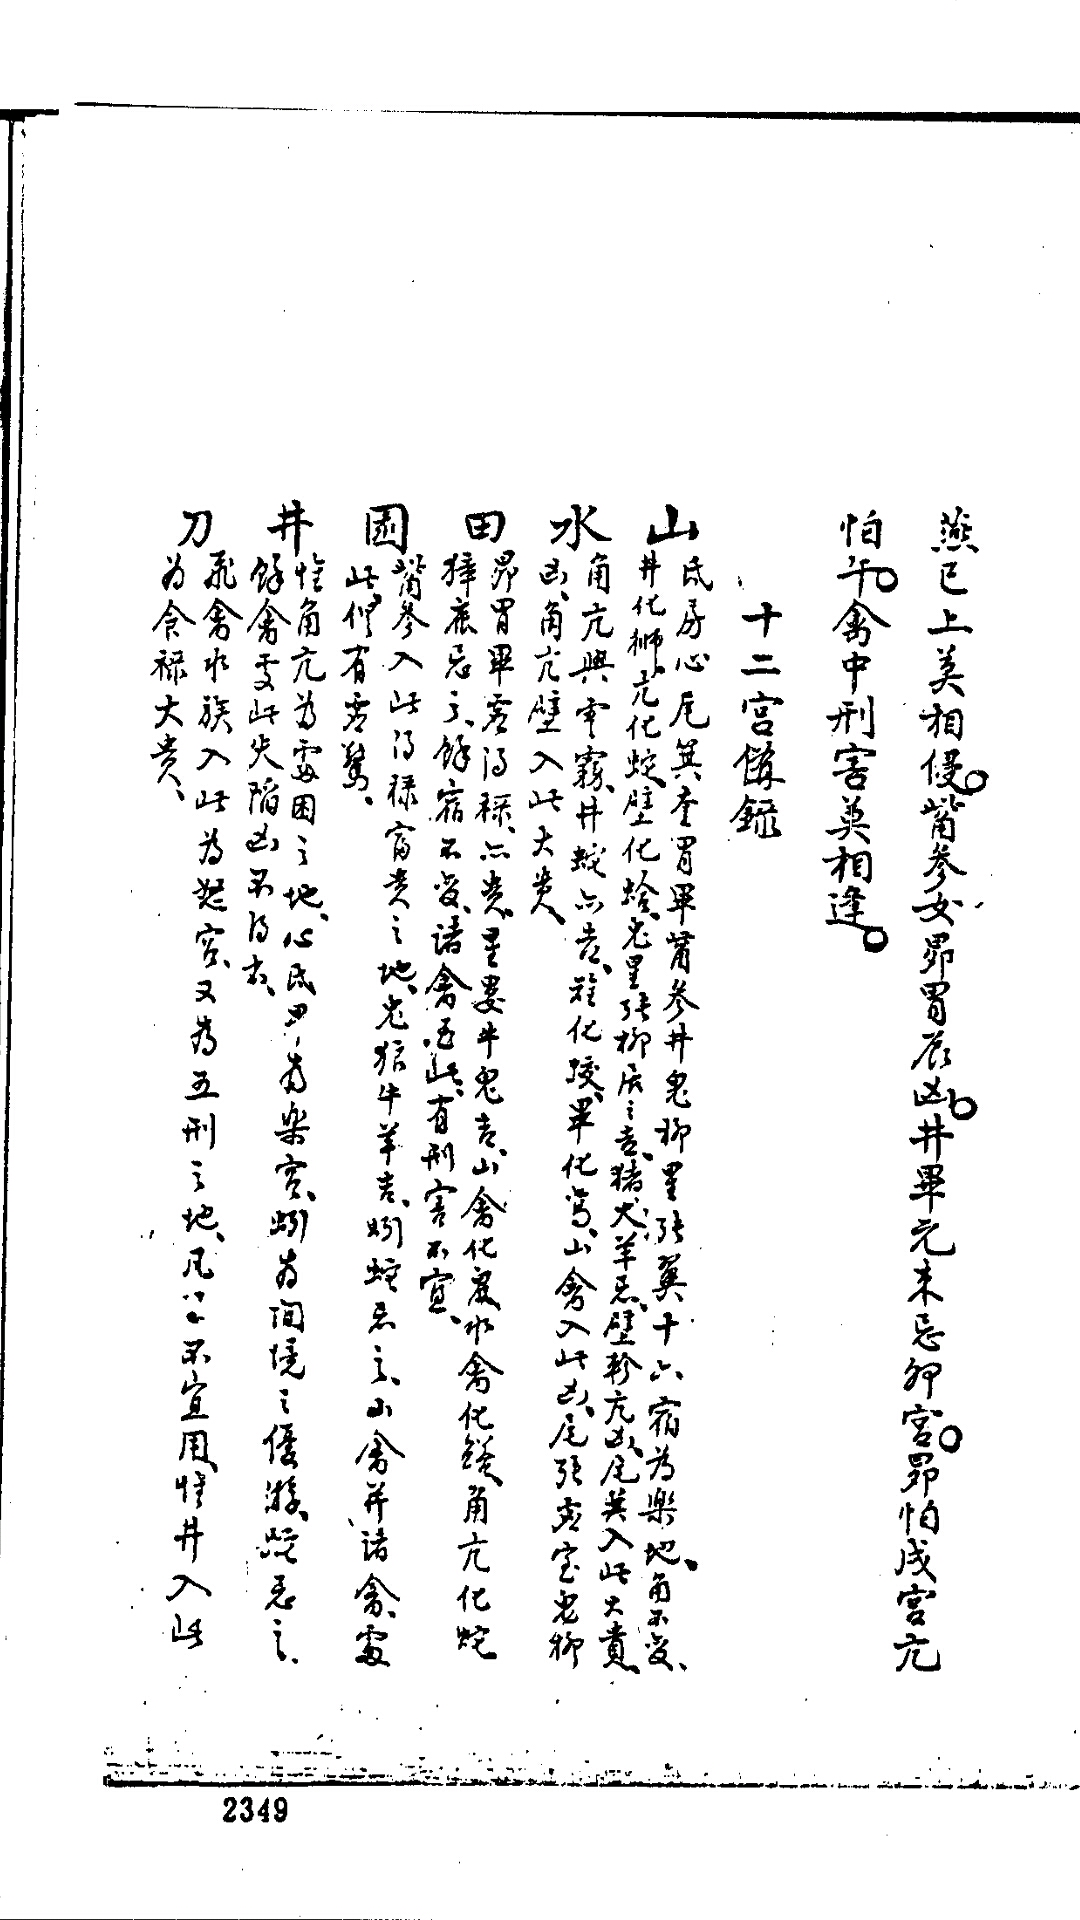 燕巳上莫相侵觜參女昴胃辰凶井畢元未忌卯宮昴怕戌宮亢
怕午禽中刑害莫相逢
十二宮備錄
山
氐房心尾箕奎胃畢觜參井鬼柳星張翼十六宿為樂地角不受
井化獅亢化蛇壁化蛤鬼星張柳居之吉猪犬羊忌壁軫亢凶尾箕入此大貴
水
角亢興雲霧井蛟亦吉 化蛟畢化 山禽入此凶尾張虛室鬼柳
凶角亢壁入此大貴
田
昴胃畢虛得祿亦貴星婁牛鬼吉山禽化 水禽化 角亢化蛇
獐鹿忌之餘宿不受諸禽 此有刑害不宜
園
觜參入此得祿富貴之地鬼猿牛羊吉蚓蛇忌之山禽并諸禽處
此俱有虛驚
井
惟角亢為 困之地心氐 為樂宮蚓為 境之優游蛇忌之
餘禽受此失陷凶不得
刀
飛禽水族入此為 宮又為五刑之地凡 不宜用惟井入此
為食祿大貴
2349